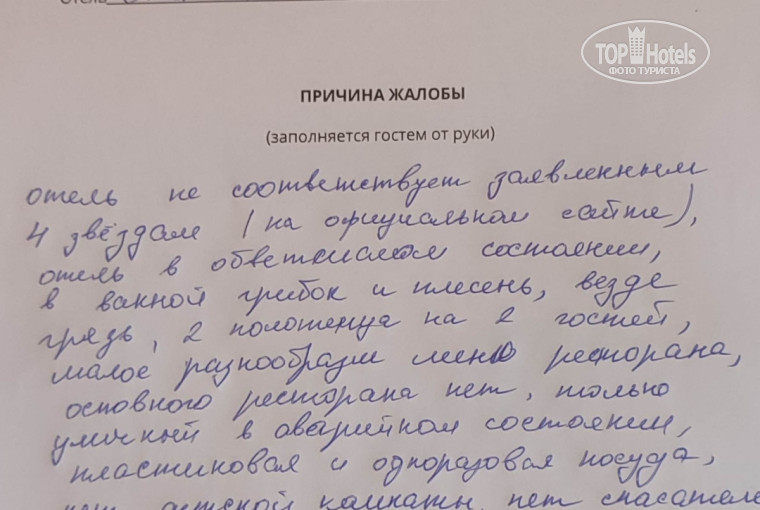 Отель
TOP Hotels
ФОТО ТУРИСТА
ПРИЧИНА ЖАЛОБЫ
(заполняется гостем от руки)
отель не соответствует заявленным
4 звёздам (на официальном сайте),
отель в обветшалом состоянии,
в ванной грибок и плесень, везде
грязь, 2 полотенца на 2 гостей,
малое разнообразие меню ресторана,
основного ресторана нет, только
уличный в аварийном состоянии,
пластиковая и одноразовая посуда,
нет детской комнаты, нет спасателе